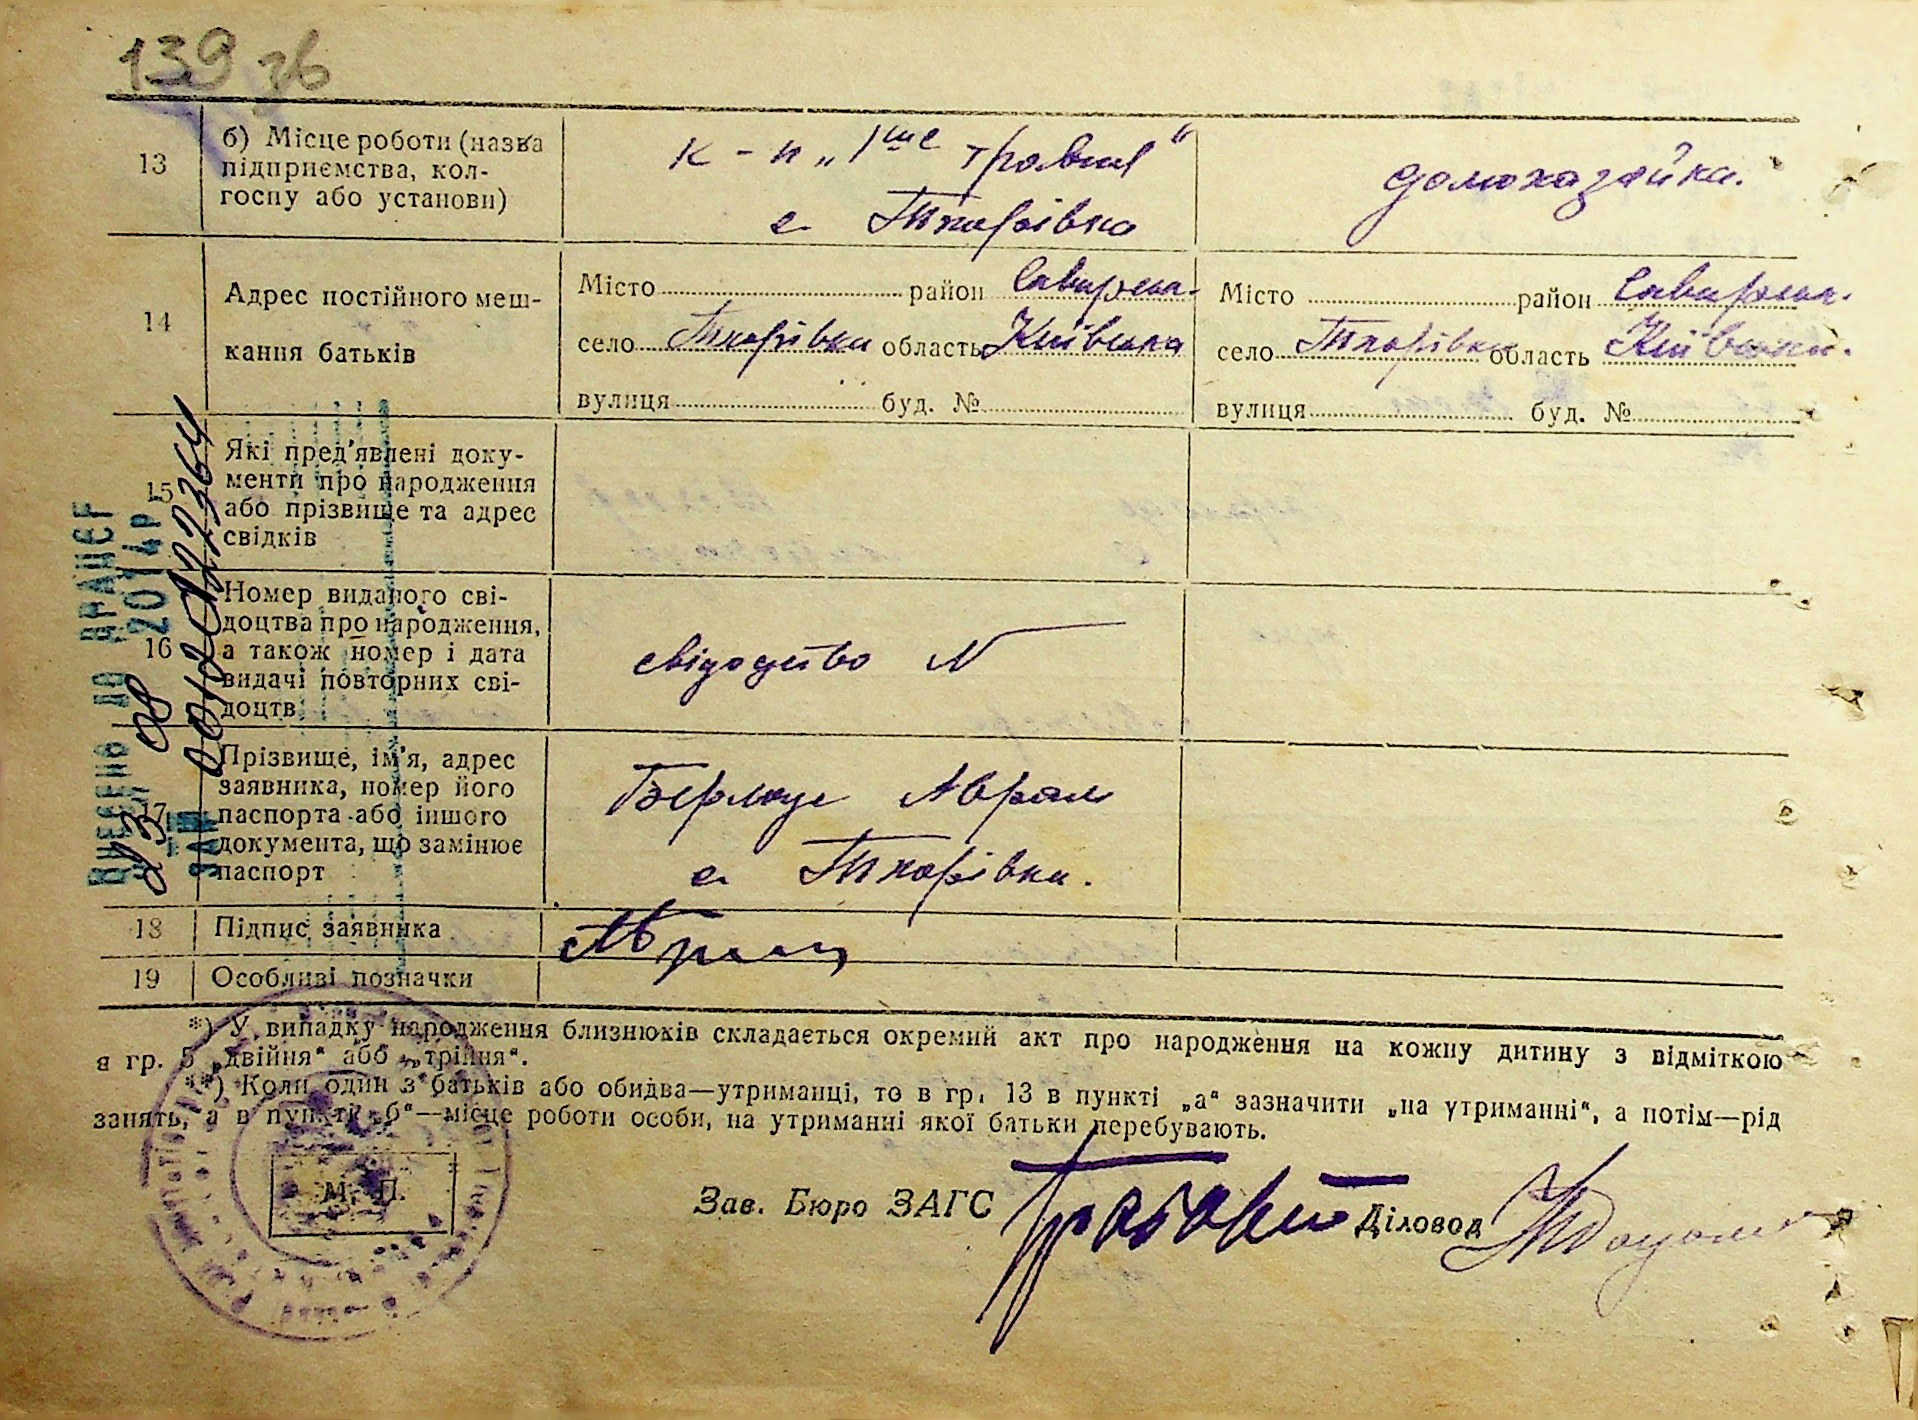 139 зв
13
б) Місце роботи (назва
підприємства, кол-
госпу або установи)
к-п „1ше травня“
с. Ткарівка
домохазяйка.
14
Адрес постійного меш-
кання батьків
Місто район Савирськ.
село Ткарівка область Київська
вулиця буд. №
Місто район Савирськ.
село Ткарівка область Київськ.
вулиця буд. №
15
Які пред'явлені доку-
менти про народження
або прізвище та адрес
свідків
16
Номер виданого сві-
доцтва про народження,
а також номер і дата
видачі повторних сві-
доцтв
свідоцтво N
17
Прізвище, ім'я, адрес
заявника, номер його
паспорта або іншого
документа, що замінює
паспорт
Аврам
с. Ткарівка.
18
Підпис заявника
19
Особливі позначки
ВНЕСЕНО ДО ДРАЦСГ
23 08 2014р.
ЗА №
00120122364
*) У випадку народження близнюків складається окремий акт про народження на кожну дитину з відміткою
в гр. 5 „двійня“ або „трійня“.
**) Коли один з батьків або обидва—утриманці, то в гр. 13 в пункті „а“ зазначити „на утриманні“, а потім—рід
занять, а в пункті „б“—місце роботи особи, на утриманні якої батьки перебувають.
М. П.
Зав. Бюро ЗАГС
Діловод